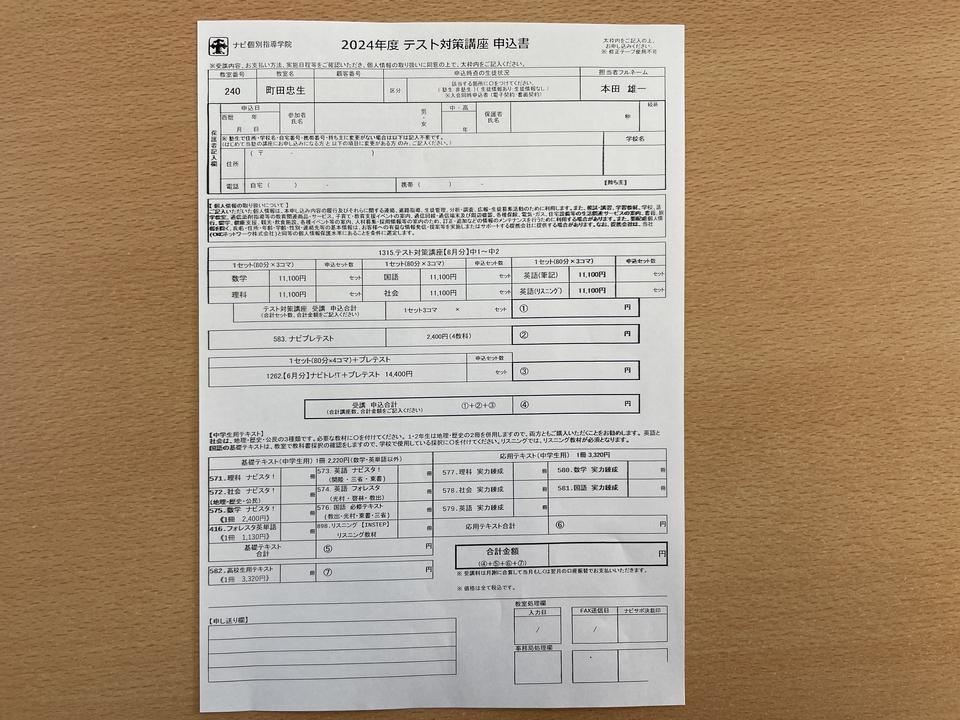 ナビ個別指導学院
2024年度 テスト対策講座 申込書
太枠内をご記入の上、
お申し込みください。
※ 修正テープ使用不可
※受講内容、お支払い方法、実施日程等をご確認いただき、個人情報の取り扱いに同意の上で、太枠内をご記入ください。
教室番号 教室名 顧客番号 申込時点の生徒状況 担当者フルネーム
240 町田忠生 区分 該当する箇所に○をつけてください。
( 塾生・非塾生 ) ( 生徒情報あり・生徒情報なし )
※入会同時申込者 (電子契約・書面契約)
本田 雄一
保護者記入欄
申込日 西暦 年 月 日
参加者氏名 男・女 中・高 年
保護者氏名 続柄 称
※ 塾生で住所・学校名・自宅番号・携帯番号・持ち主に変更がない場合は以下は記入不要です。
(はじめて当塾の講座にお申し込みになる方 と 以下の項目に変更がある方 のみ、ご記入ください。)
学校名
住所 (〒 - )
電話 自宅 ( ) - 携帯 ( ) - 【持ち主】
【 個人情報の取り扱いについて 】
1315.テスト対策講座【8月分】中1～中2
1セット(80分×3コマ) 申込セット数 1セット(80分×3コマ) 申込セット数 1セット(80分×3コマ) 申込セット数
数学 11,100円 セット 国語 11,100円 セット 英語(筆記) 11,100円 セット
理科 11,100円 セット 社会 11,100円 セット 英語(リスニング) 11,100円 セット
テスト対策講座 受講 申込合計
(合計セット数、合計金額をご記入ください)
1セット3コマ × セット ① 円
583. ナビプレテスト 2,400円(4教科) ② 円
1セット(80分×4コマ)+プレテスト 申込セット数
1262.【6月分】ナビトレ!T+プレテスト 14,400円 セット ③ 円
受講 申込合計
(合計講座数、合計金額をご記入ください)
①+②+③ ④ 円
【中学生用テキスト】
社会は、地理・歴史・公民の3種類です。必要な教材に○を付けてください。1・2年生は地理・歴史の2冊を併用しますので、両方ともご購入いただくことをお勧めします。英語と
国語の基礎テキストは、教室で教科書採択の確認をしますので、学校で使用している採択に○を付けてください。リスニングでは、リスニング教材が必須となります。
基礎テキスト(中学生用) 1冊 2,220円(数学・英単語以外) 応用テキスト(中学生用) 1冊 3,320円
571.理科 ナビスタ！ 冊 573.英語 ナビスタ！
(開隆・三省・東書) 冊
577.理科 実力練成 冊 580.数学 実力練成 冊
572.社会 ナビスタ！
(地理・歴史・公民) 冊
574.英語 フォレスタ
(光村・啓林・教出) 冊
578.社会 実力練成 冊 581.国語 実力練成 冊
575.数学 ナビスタ！
《1冊 2,400円》 冊
576.国語 必修テキスト
(教出・光村・東書・三省) 冊
579.英語 実力練成 冊
416.フォレスタ英単語
《1冊 1,130円》 冊
898.リスニング【INSTEP】
リスニング教材 冊
応用テキスト合計 ⑥ 円
基礎テキスト
合計
⑤ 円
合計金額
(④+⑤+⑥+⑦)
円
582.高校生用テキスト
《1冊 3,320円》
冊 ⑦ 円
※ 受講料は月謝に合算して当月もしくは翌月の口座振替でお支払いいただきます。
※ 価格は全て税込です。
【申し送り欄】
教室処理欄
入力日 FAX送信日 ナビサポ決裁印
/ /
事務局処理欄